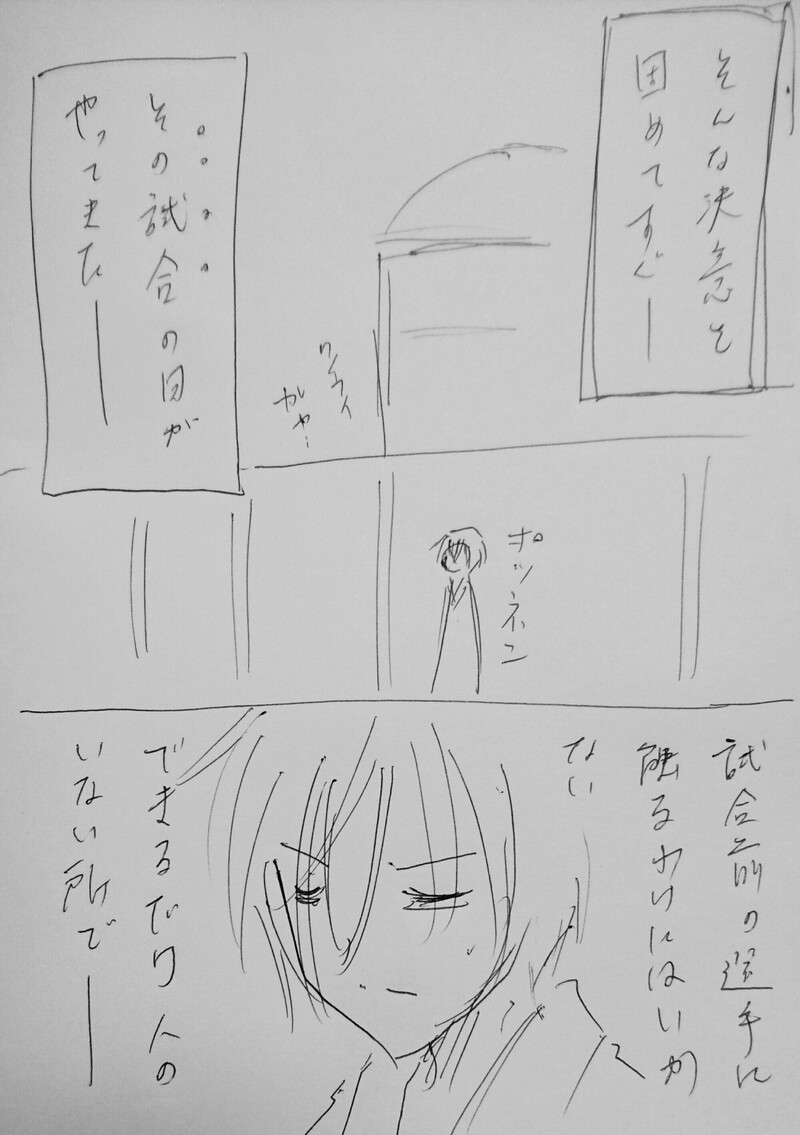 そんな決意を
固めてすぐ―
その試合の日が
やってきた―
ワイワイ
ガヤ
ポツネン
試合前の選手に
触るわけにはいか
ない
できるだけ人の
いない所で―